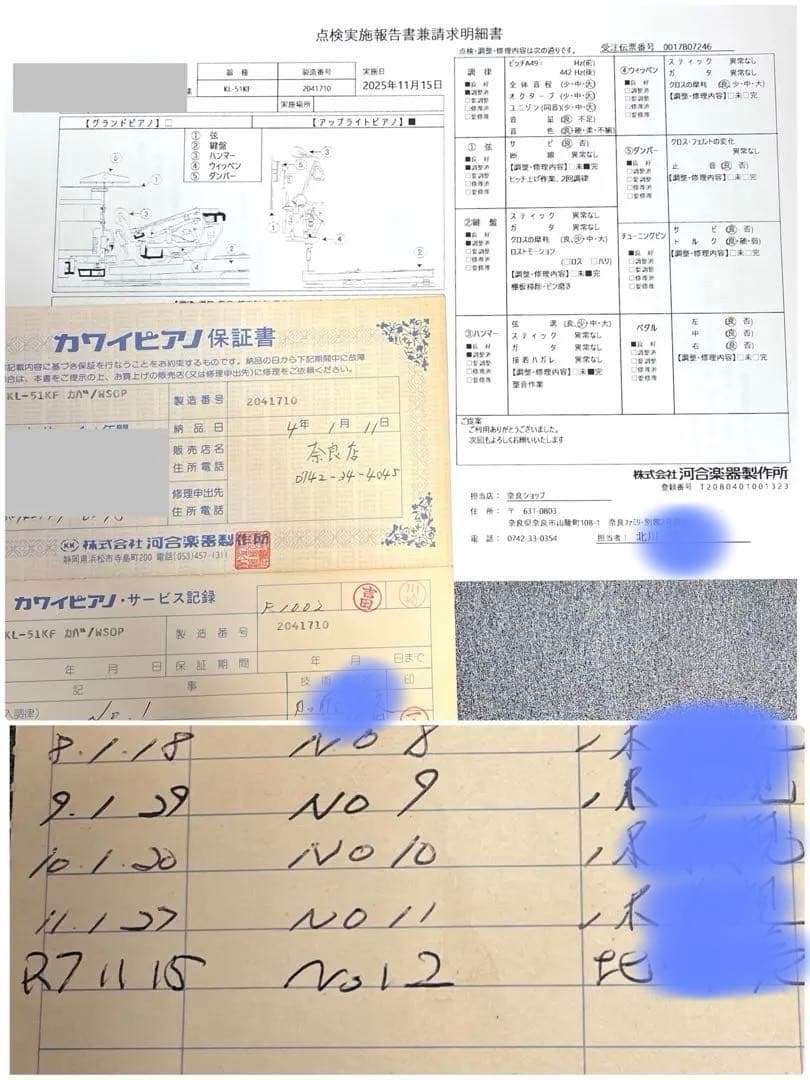 点検実施報告書兼請求明細書
点検・調整・修理内容は次の通りです。
受注伝票番号 0017807246
器種 製造番号 実施日
KL-51KF 2041710 2025年11月15日
実施場所
【グランドピアノ】□ 【アップライトピアノ】■
① 弦
② 鍵盤
③ ハンマー
④ ウィッペン
⑤ ダンパー
調律
■良好
■調整済
□要調整
□修理済
□要修理
ピッチA49: Hz(前)
442 Hz(後)
全体音程 (少・中・大)
オクターブ (少・中・大)
ユニゾン(同音)(少・中・大)
音量 (良 不足)
音色 (良・硬・柔・不揃)
①弦
■良好
■調整済
□要調整
□修理済
□要修理
サビ (良 否)
断線 異常なし
【調整・修理内容】□未■完
ピッチ上げ作業、2回調律
②鍵盤
■良好
■調整済
□要調整
□修理済
□要修理
スティック 異常なし
ガタ 異常なし
クロスの摩耗 (良、少・中・大)
ロストモーション
(□ロス □ハリ)
【調整・修理内容】□未■完
棚板掃除・ピン磨き
③ハンマー
■良好
■調整済
□要調整
□修理済
□要修理
弦溝 (良、少・中・大)
スティック 異常なし
ガタ 異常なし
接着ハガレ 異常なし
【調整・修理内容】□未■完
整音作業
④ウィッペン
■良好
□調整済
□要調整
□修理済
□要修理
スティック 異常なし
ガタ 異常なし
クロスの摩耗 (良、少・中・大)
【調整・修理内容】□未□完
⑤ダンパー
■良好
□調整済
□要調整
□修理済
□要修理
クロス・フェルトの変化
異常なし
止音 (良 否)
【調整・修理内容】□未□完
チューニングピン
■良好
□調整済
□要調整
□修理済
□要修理
サビ (良 否)
トルク (良・硬・弱)
【調整・修理内容】□未□完
ペダル
■良好
□調整済
□要調整
□修理済
□要修理
左 (良 否)
中 (良 否)
右 (良 否)
【調整・修理内容】□未□完
ご提案
ご利用ありがとうございました。
次回もよろしくお願いいたします
株式会社 河合楽器製作所
登録番号 T2080401001323
担当店: 奈良ショップ
住所: 〒 631-0803
奈良県奈良市山陵町108-1 奈良ファミリー別館
電話: 0742-33-0354 担当者: 北川
カワイピアノ 保証書
記載内容に基づき保証を行なうことをお約束するものです。納品の日から下記期間中に故障
合は、本書をご提示の上、お買上げの販売店(又は修理申出先)に修理をご依頼ください。
KL-51KF カバ/WSOP
製造番号 2041710
納品日 4年1月11日
販売店名 奈良店
住所電話 0742-34-4045
修理申出先
住所電話
株式会社 河合楽器製作所
静岡県浜松市寺島町200 電話(053)457-
カワイピアノ・サービス記録
F1002
吉田
KL-51KF カバ/WSOP
製造番号 2041710
年 月 日 保証期間 年 月 日まで
記事 技術 印
入調律) No.1
8.1.18 NO 8
9.1.29 NO 9
10.1.20 NO 10
11.1.27 NO 11
R7 11 15 No12